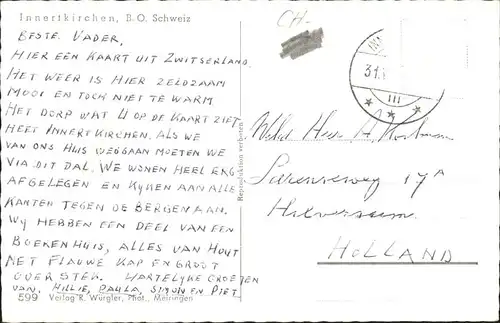 Innertkirchen, B.O. Schweiz
CH-
BESTE VADER,
HIER EEN KAART UIT ZWITSERLAND.
HET WEER IS HIER ZELDZAAM
MOOI EN TOCH NIET TE WARM
HET DORP WAT U OP DE KAART ZIET
HEET INNERTKIRCHEN. ALS WE
VAN ONS HUIS WEGGAAN MOETEN WE
VIA DIT DAL. WE WONEN HEEL ERG
AFGELEGEN EN KYKEN AAN ALLE
KANTEN TEGEN DE BERGEN AAN.
WY HEBBEN EEN DEEL VAN EEN
BOERENHUIS, ALLES VAN HOUT
MET FLAUWE KAP EN GROOT
OVERSTEK. HARTELYKE GROETEN
VAN, HILLIE, PAULA, SIMON EN PIET
599 Verlag R. Würgler, Phot., Meiringen
Reproduktion verboten
31.
III
Heer H.
17A
Hilversum
HOLLAND